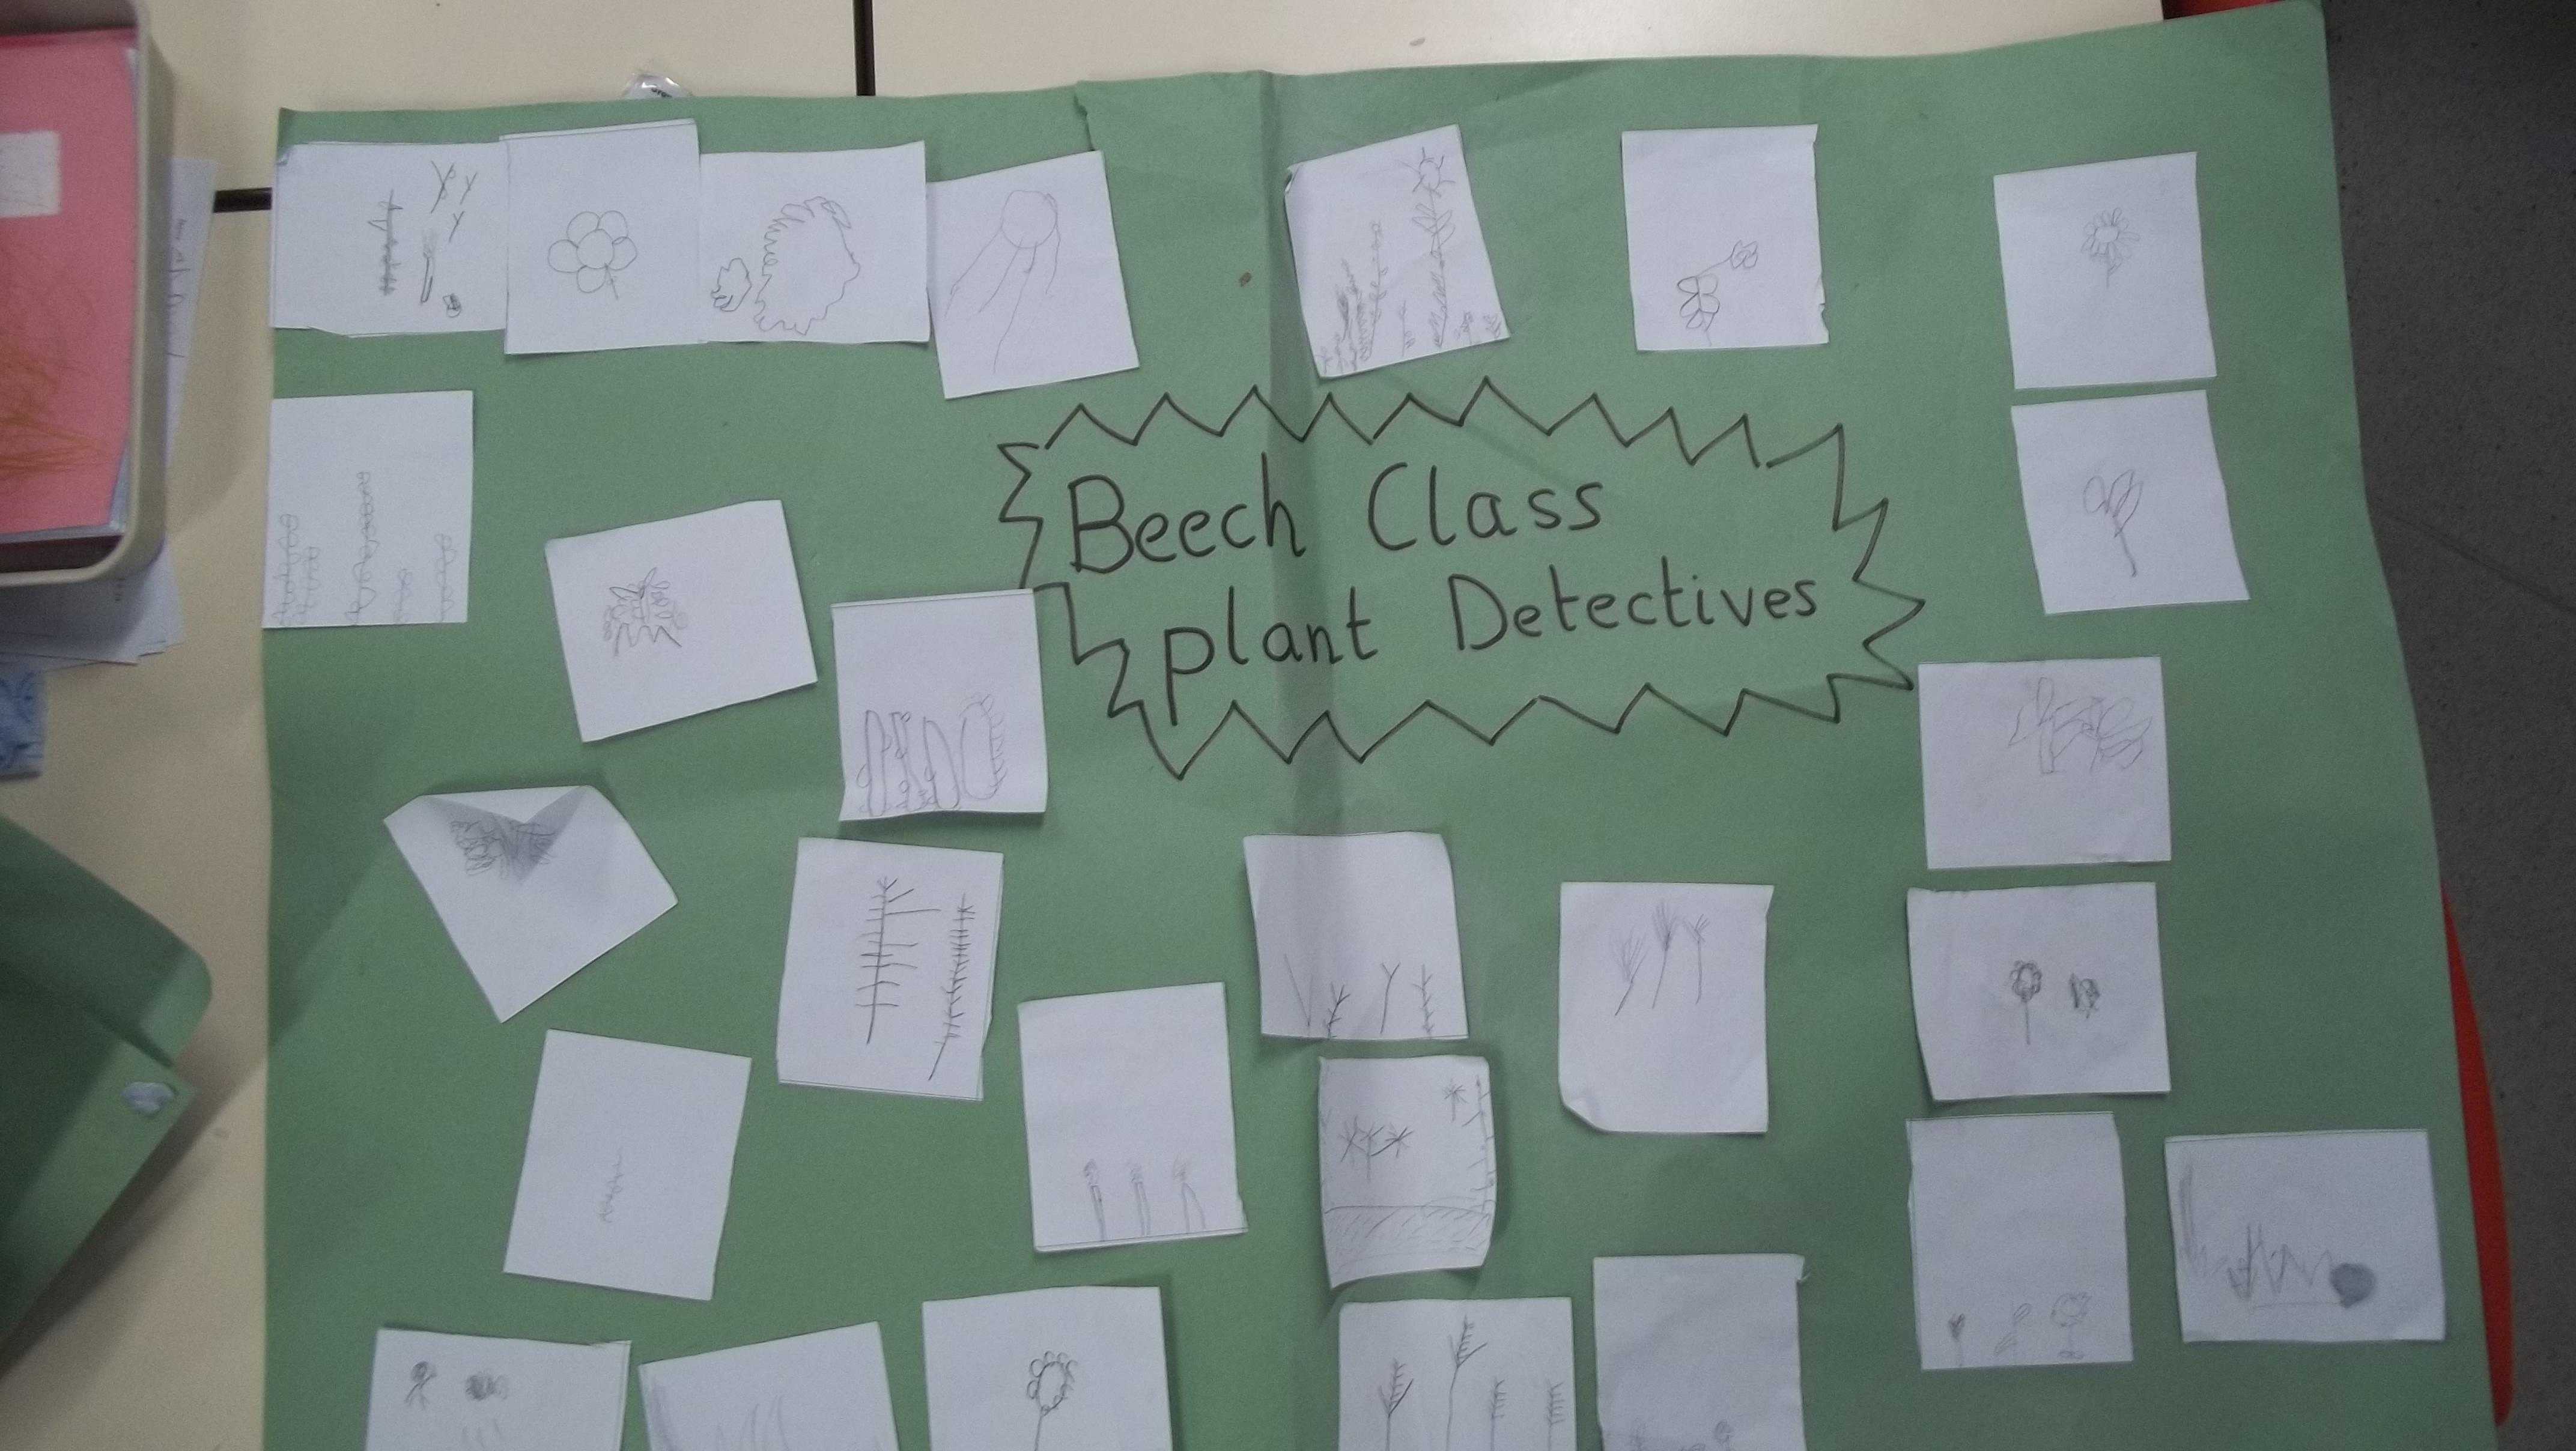 Beech Class
plant Detectives